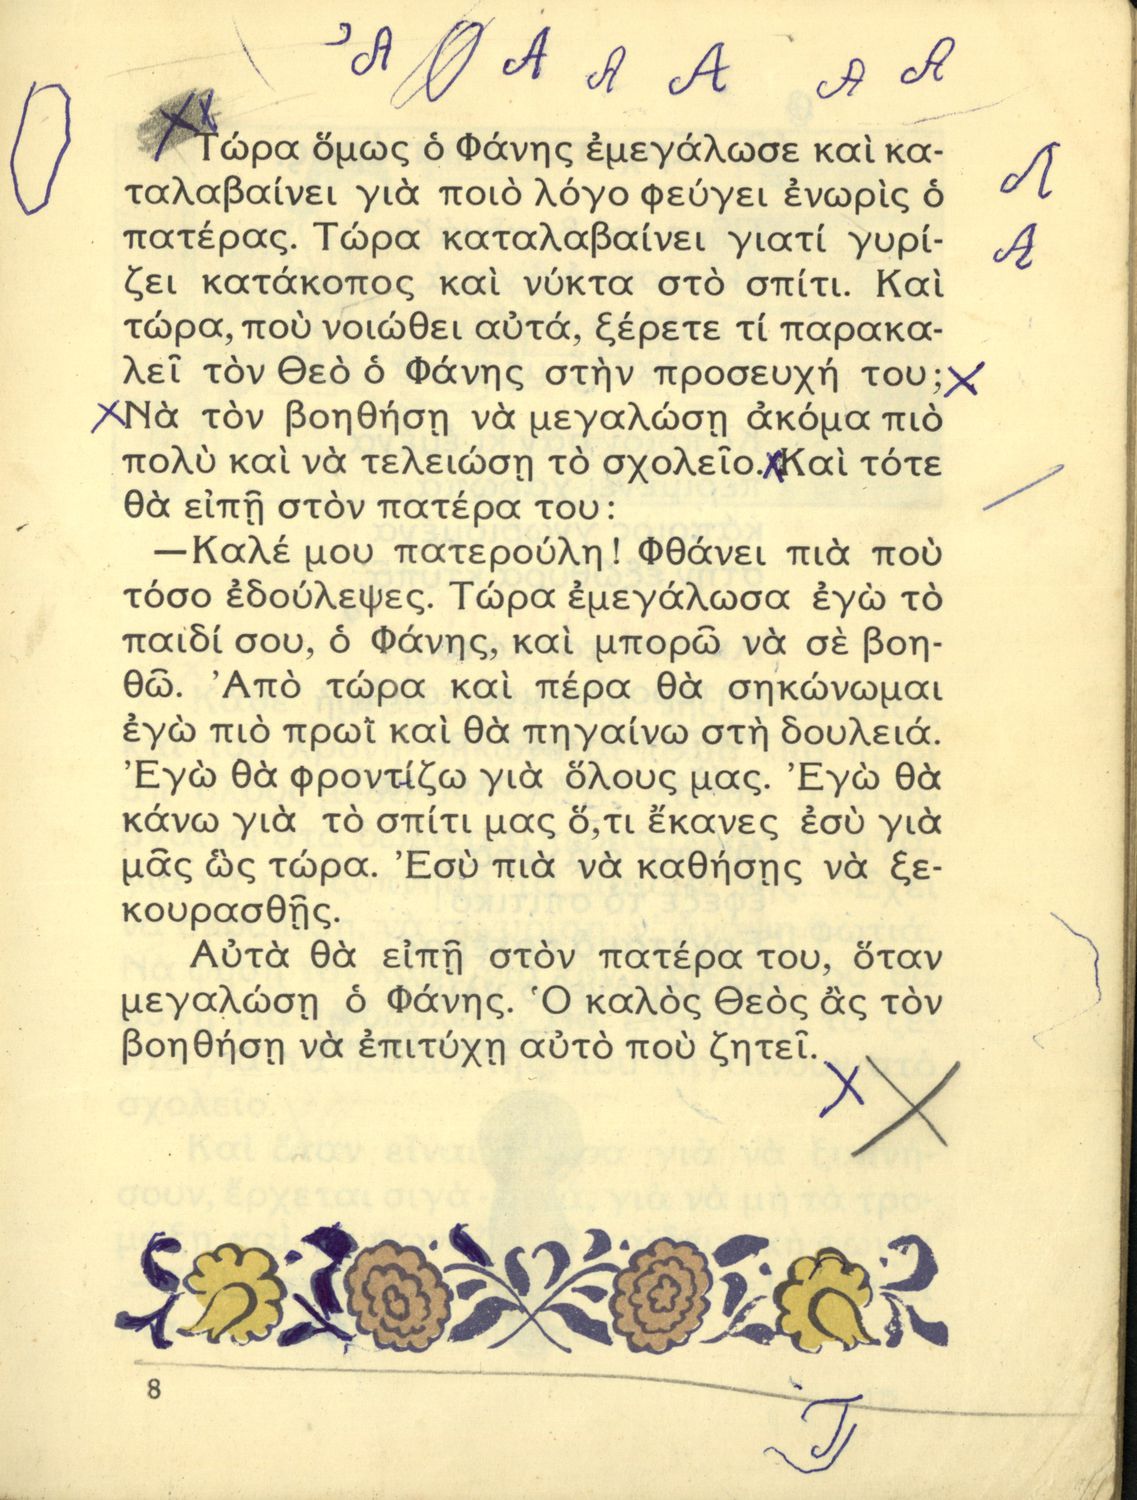 Ἀ Α Α Α Α Α
Τώρα ὅμως ὁ Φάνης ἐμεγάλωσε καὶ κα-
ταλαβαίνει γιὰ ποιὸ λόγο φεύγει ἐνωρὶς ὁ
πατέρας. Τώρα καταλαβαίνει γιατί γυρί-
ζει κατάκοπος καὶ νύκτα στὸ σπίτι. Καὶ
τώρα, ποὺ νοιώθει αὐτά, ξέρετε τί παρακα-
λεῖ τὸν Θεὸ ὁ Φάνης στὴν προσευχή του;
Νὰ τὸν βοηθήσῃ νὰ μεγαλώσῃ ἀκόμα πιὸ
πολὺ καὶ νὰ τελειώσῃ τὸ σχολεῖο. Καὶ τότε
θὰ εἰπῇ στὸν πατέρα του:
—Καλέ μου πατερούλη! Φθάνει πιὰ ποὺ
τόσο ἐδούλεψες. Τώρα ἐμεγάλωσα ἐγὼ τὸ
παιδί σου, ὁ Φάνης, καὶ μπορῶ νὰ σὲ βοη-
θῶ. Ἀπὸ τώρα καὶ πέρα θὰ σηκώνωμαι
ἐγὼ πιὸ πρωῒ καὶ θὰ πηγαίνω στὴ δουλειά.
Ἐγὼ θὰ φροντίζω γιὰ ὅλους μας. Ἐγὼ θὰ
κάνω γιὰ τὸ σπίτι μας ὅ,τι ἔκανες ἐσὺ γιὰ
μᾶς ὣς τώρα. Ἐσὺ πιὰ νὰ καθήσῃς νὰ ξε-
κουρασθῇς.
Αὐτὰ θὰ εἰπῇ στὸν πατέρα του, ὅταν
μεγαλώσῃ ὁ Φάνης. Ὁ καλὸς Θεὸς ἂς τὸν
βοηθήσῃ νὰ ἐπιτύχῃ αὐτὸ ποὺ ζητεῖ.
8